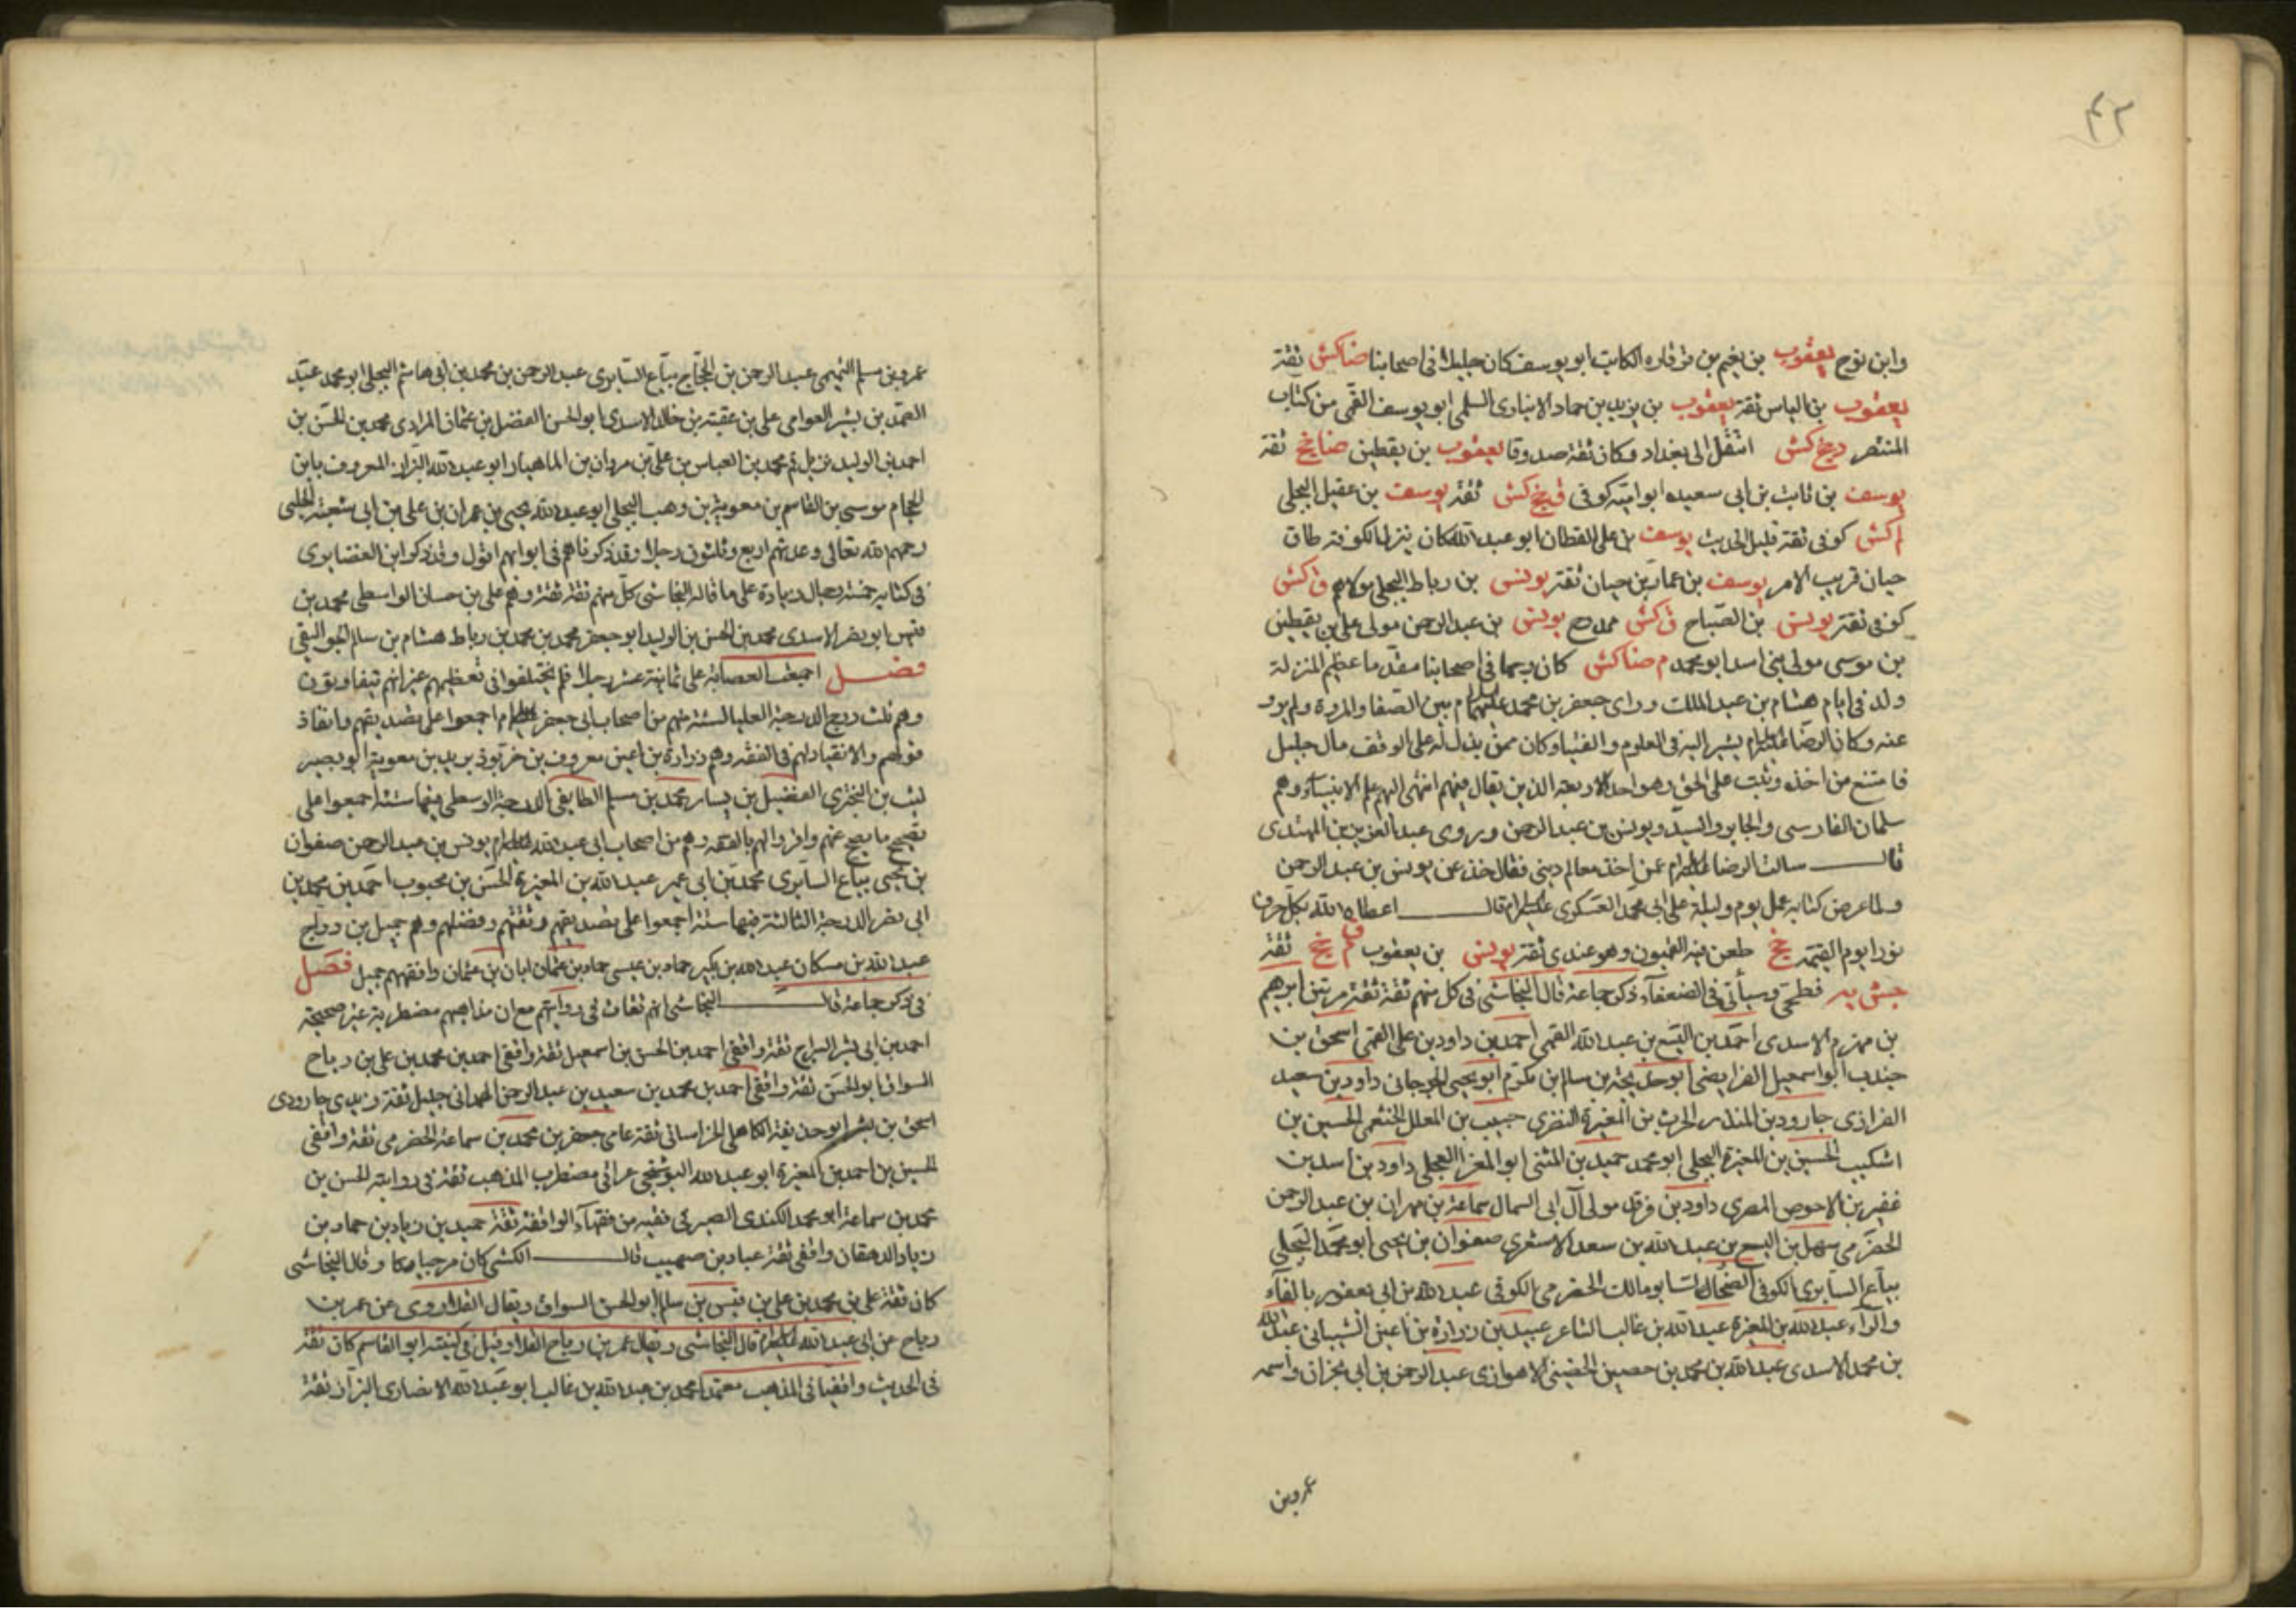 ٤٢
وابن نوح يعقوب بن نعيم بن قرقاره الكاتب ابو يوسف كان جليلا فى اصحابنا ضا كش ثقة
يعقوب بن الياس ثقة يعقوب بن يزيد بن حماد الانبارى السلمى ابو يوسف القمى من كتاب
المنتصر دى خ كش انتقل الى بغداد وكان ثقة صدوقا يعقوب بن يقطين ضا خ ثقة
يوسف بن ثابت بن ابى سعيده ابو اميه كوفى ق خ كش ثقة يوسف بن عقيل البجلى
لم كش كوفى ثقة قليل الحديث يوسف بن على القطان ابو عبدالله كان ينزل الكوفة طاق
حيان قريب الامر يوسف بن عمار بن حيان ثقة يونس بن رباط البجلى مولاهم ق كش
كوفى ثقة يونس بن الصباح ق كش ممدوح يونس بن عبدالرحمن مولى على بن يقطين
بن موسى مولى بنى اسد ابو محمد م ضا كش كان وجها فى اصحابنا مقدما عظيم المنزلة
ولد فى ايام هشام بن عبدالملك وراى جعفر بن محمد عليهما السلام بين الصفا والمروة ولم يرو
عنه وكان الرضا عليه السلام يشير اليه فى العلوم والفتيا وكان ممن بذل له على الوقف مال جليل
فامتنع من اخذه وثبت على الحق وهو احد الاربعة الذين يقال فيهم انتهى اليهم علم الانبياء وهم
سلمان الفارسى والجابر والسيد ويونس بن عبدالرحمن وروى عبدالعزيز بن المهتدى
قال سالت الرضا عليه السلام عمن اخذ معالم دينى فقال خذ عن يونس بن عبدالرحمن
ولما عرض كتابه عمل يوم وليلة على ابى محمد العسكرى عليه السلام قال اعطاه الله بكل حرف
نورا يوم القيمة خ طعن فيه القميون وهو عندى ثقة يونس بن يعقوب ق م خ ثقة
جش يه فطحى وسيأتى فى الضعفاء ذكر جماعة قال النجاشى فى كل منهم ثقة ثقة مرتين ابرهيم
بن مهزم الاسدى احمد بن اليسع بن عبدالله القمى احمد بن داود بن على القمى اسحق بن
جندب ابو اسمعيل الفرايضى ابو خديجة بن سالم بن مكرم ابو يحيى الجرجانى داود بن سعيد
الفزارى جارود بن المنذر الحرث بن المغيرة النضرى حبيب بن المعلل الخثعمى الحسين بن
اشكيب الحسين بن المغيرة البجلى ابو محمد حميد بن المثنى ابو المغرا العجلى داود بن اسد بن
عفير بن الاحوص المصرى داود بن فرقد مولى آل ابى السمال سماعة بن مهران بن عبدالرحمن
الحضرمى سهل بن اليسع بن عبدالله بن سعد الاشعرى صفوان بن يحيى ابو محمد البجلى
بياع السابرى الكوفى الضحاك ابو مالك الحضرمى الكوفى عبدالله بن ابى يعفور بالفاء
والراء عبدالله بن المغيرة عبدالله بن غالب الشاعر عبيد بن زرارة بن اعين الشيبانى عبدالله
بن محمد الاسدى عبدالله بن محمد بن حصين الحضينى الاهوازى عبدالرحمن بن ابى نجران واسمه
عمرو بن
عمرو بن مسلم التميمى عبدالرحمن بن الحجاج بياع السابرى عبدالرحمن بن محمد بن ابى هاشم البجلى ابو محمد عبد
الصمد بن بشير العرامى على بن عقبة بن خالد الاسدى ابو الحسن الفضل بن عثمان المرادى محمد بن الحسن بن
احمد بن الوليد نزيل قم محمد بن العباس بن على بن مروان بن الماهيار ابو عبدالله البزاز المعروف بابن
الحجام موسى بن القاسم بن معوية بن وهب البجلى ابو عبدالله يحيى بن عمران بن على بن ابى شعبة الحلبى
رحمهم الله تعالى وعدتهم اربع وثلثون رجلا وقد ذكرناهم فى ابوابهم اقول وقد ذكر ابن الغضايرى
فى كتابه خمسة رجال زيادة على ما قاله النجاشى كل منهم ثقة ثقة وهم على بن حسان الواسطى محمد بن
قيس ابو نصر الاسدى محمد بن الحسن بن الوليد ابو جعفر محمد بن محمد بن رباط هشام بن سالم الجواليقى
فصل اجمعت العصابة على ثمانية عشر رجلا فلم يختلفوا فى تعظيمهم غير انهم يتفاوتون
وهم ثلث درج الدرجة العليا الستة منهم من اصحاب ابى جعفر عليه السلام اجمعوا على تصديقهم وانفاذ
قولهم والانقياد لهم فى الفقه وهم زرارة بن اعين معروف بن خربوذ بريد بن معوية ابو بصير
ليث بن البخترى الفضيل بن يسار محمد بن مسلم الطايفى الدرجة الوسطى فيها ستة اجمعوا على
تصحيح ما يصح عنهم واقروا لهم بالفقه وهم من اصحاب ابى عبدالله عليه السلام يونس بن عبدالرحمن صفوان
بن يحيى بياع السابرى محمد بن ابى عمير عبدالله بن المغيرة الحسن بن محبوب احمد بن محمد بن
ابى نصر الدرجة الثالثة فيها ستة اجمعوا على تصديقهم وثقتهم وفضلهم وهم جميل بن دراج
عبدالله بن مسكان عبدالله بن بكير حماد بن عيسى حماد بن عثمان ابان بن عثمان وافقهم جميل فصل
فى ذكر جماعة قال النجاشى انهم ثقات فى روايتهم مع ان مذاهبهم مضطربة غير صحيحة
احمد بن ابى بشر السراج ثقة واقفى احمد بن الحسن بن اسمعيل ثقة واقفى احمد بن محمد بن على بن رباح
السواق ابو الحسن ثقة واقفى احمد بن محمد بن سعيد بن عبدالرحمن الهمدانى جليل ثقة زيدى جارودى
اسحق بن بشر ابو حذيفة الكاهلى الخراسانى ثقة عامى جعفر بن محمد بن سماعة الحضرمى ثقة واقفى
الحسين بن احمد بن المغيرة ابو عبدالله البوشنجى عراقى مضطرب المذهب ثقة فى روايته الحسن بن
محمد بن سماعة ابو محمد الكندى الصيرفى فقيه من فقهاء الواقفة ثقة حميد بن زياد بن حماد بن
زياد الدهقان واقفى ثقة عباد بن صهيب قال الكشى كان مرجيا وقال النجاشى
كان ثقة على بن محمد بن على بن قيس بن سالم ابو الحسن السواق ويقال القلا روى عن عمر بن
رباح عن ابى عبدالله عليه السلام قال النجاشى ويقال عمر بن رباح القلا وقيل فى كنيته ابو القاسم كان ثقة
فى الحديث واقفيا فى المذهب معتمدا محمد بن عبدالله بن غالب ابو عبدالله الانصارى البزاز ثقة